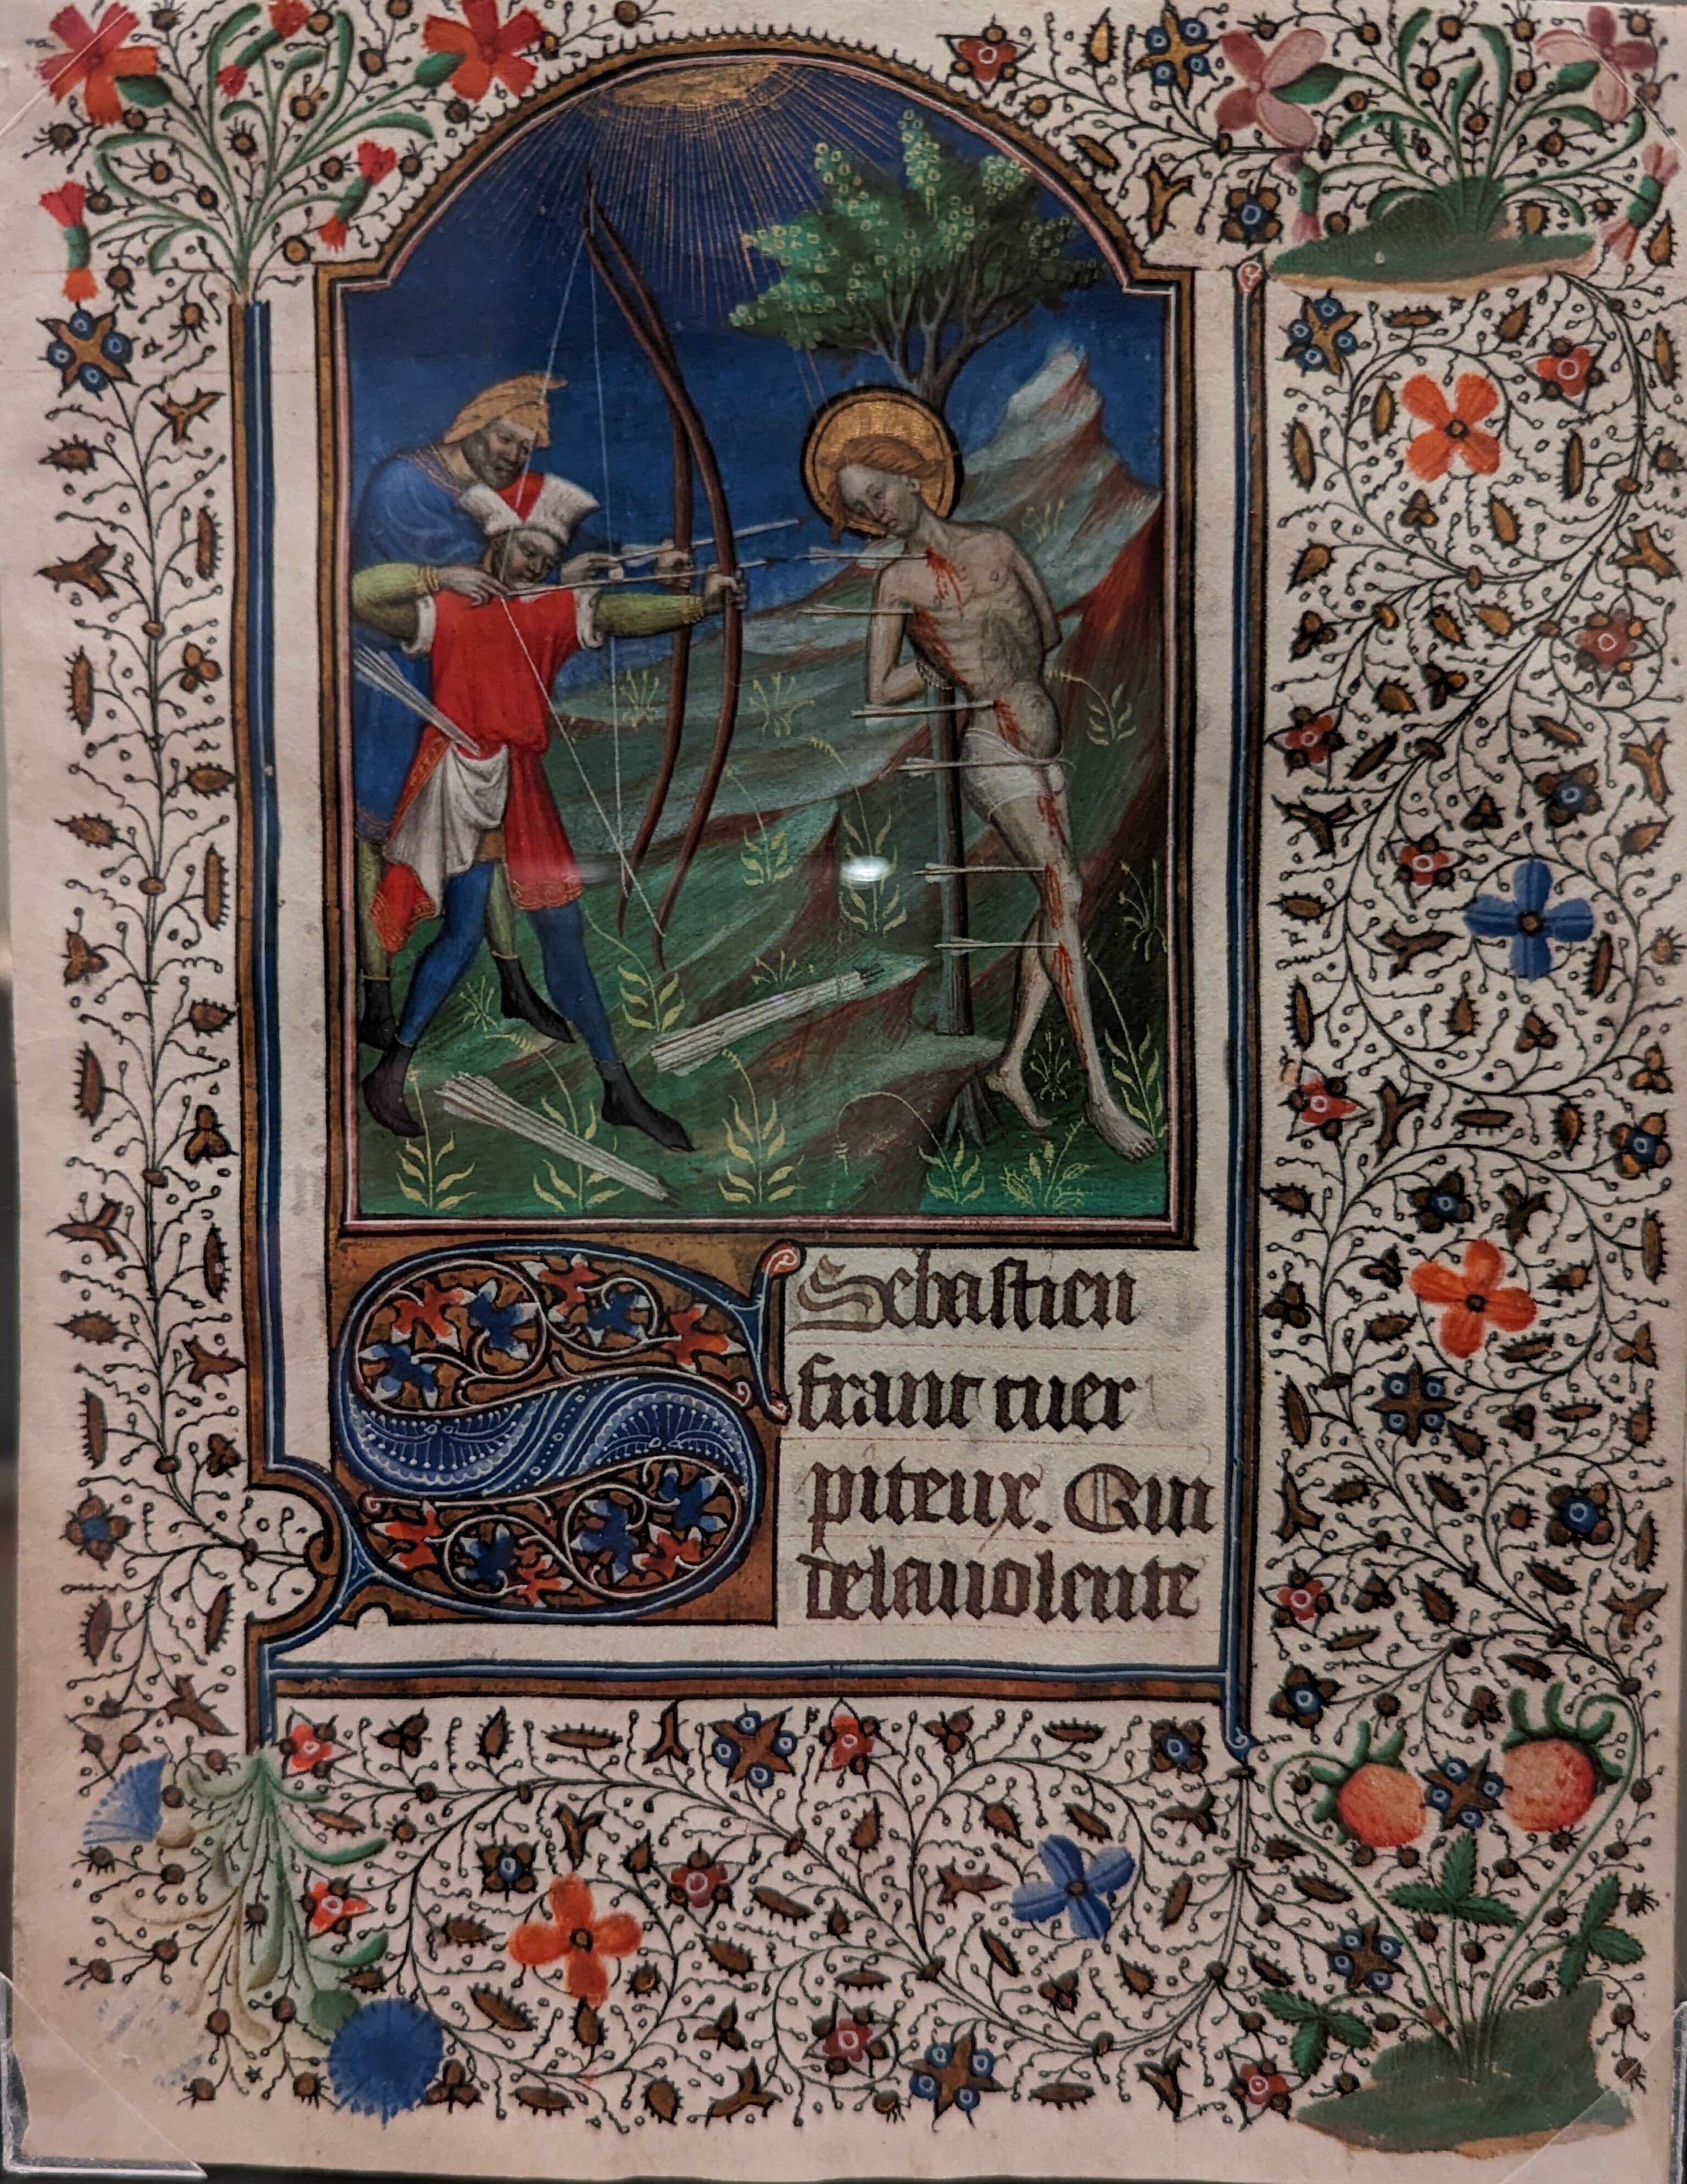 S Sebastien
franc cuer
piteux. Qui
delauolente